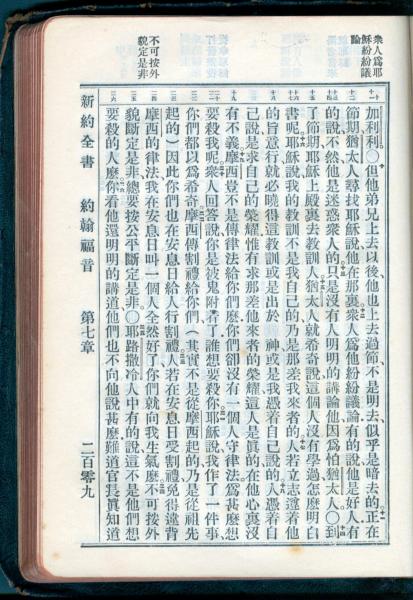 衆人爲耶
穌紛紛議
論
加利利○但他弟兄上去以後他也上去過節不是明去似乎是暗去的正在
節期猶太人尋找耶穌說他在那裏衆人爲他紛紛議論有的說他是好人有
的說不然他是迷惑衆人的只是沒有人明明的講論他因爲怕猶太人○到
了節期耶穌上殿裏去教訓人猶太人就希奇說這個人沒有學過怎麼明白
書呢耶穌說我的教訓不是我自己的乃是那差我來者的人若立志遵着他
的旨意行就必曉得這教訓或是出於　神或是我憑着自己說的人憑着自
己說是求自己的榮耀惟有求那差他來者的榮耀這人是眞的在他心裏沒
有不義摩西豈不是傳律法給你們麼你們卻沒有一個人守律法爲甚麼想
要殺我呢衆人回答說你是被鬼附着了誰想要殺你耶穌說我作了一件事
你們都以爲希奇摩西傳割禮給你們（其實不是從摩西起的乃是從祖先
起的）因此你們也在安息日給人行割禮人若在安息日受割禮免得違背
摩西的律法我在安息日叫一個人全然好了你們就向我生氣麼不可按外
不可按外
貌定是非
貌斷定是非總要按公平斷定是非○耶路撒冷人中有的說這不是他們想
要殺的人麼你看他還明明的講道他們也不向他說甚麼難道官長眞知道
新約全書　約翰福音　第七章　二百零九